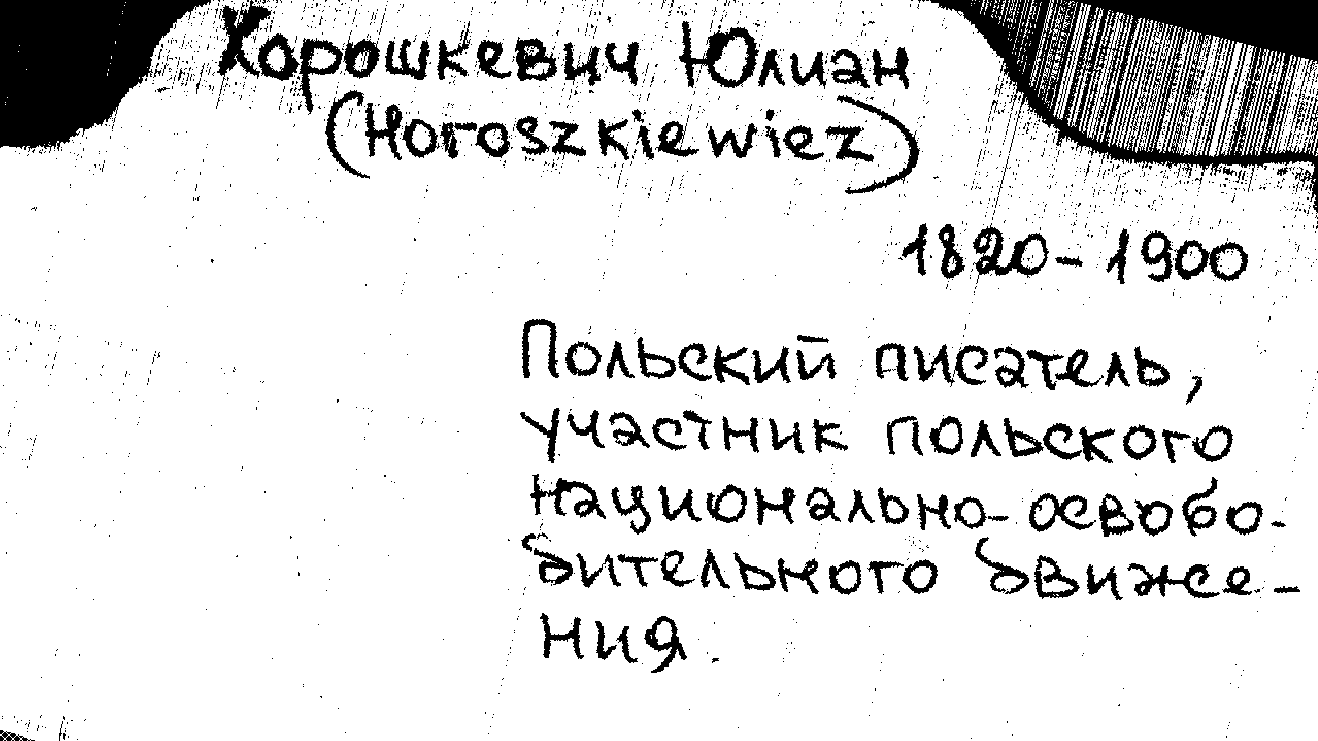 Хорошкевич Юлиан
(Horoszkiewiez)
1820-1900
Польский писатель,
участник польского
национально-освобо-
дительного движе-
ния.